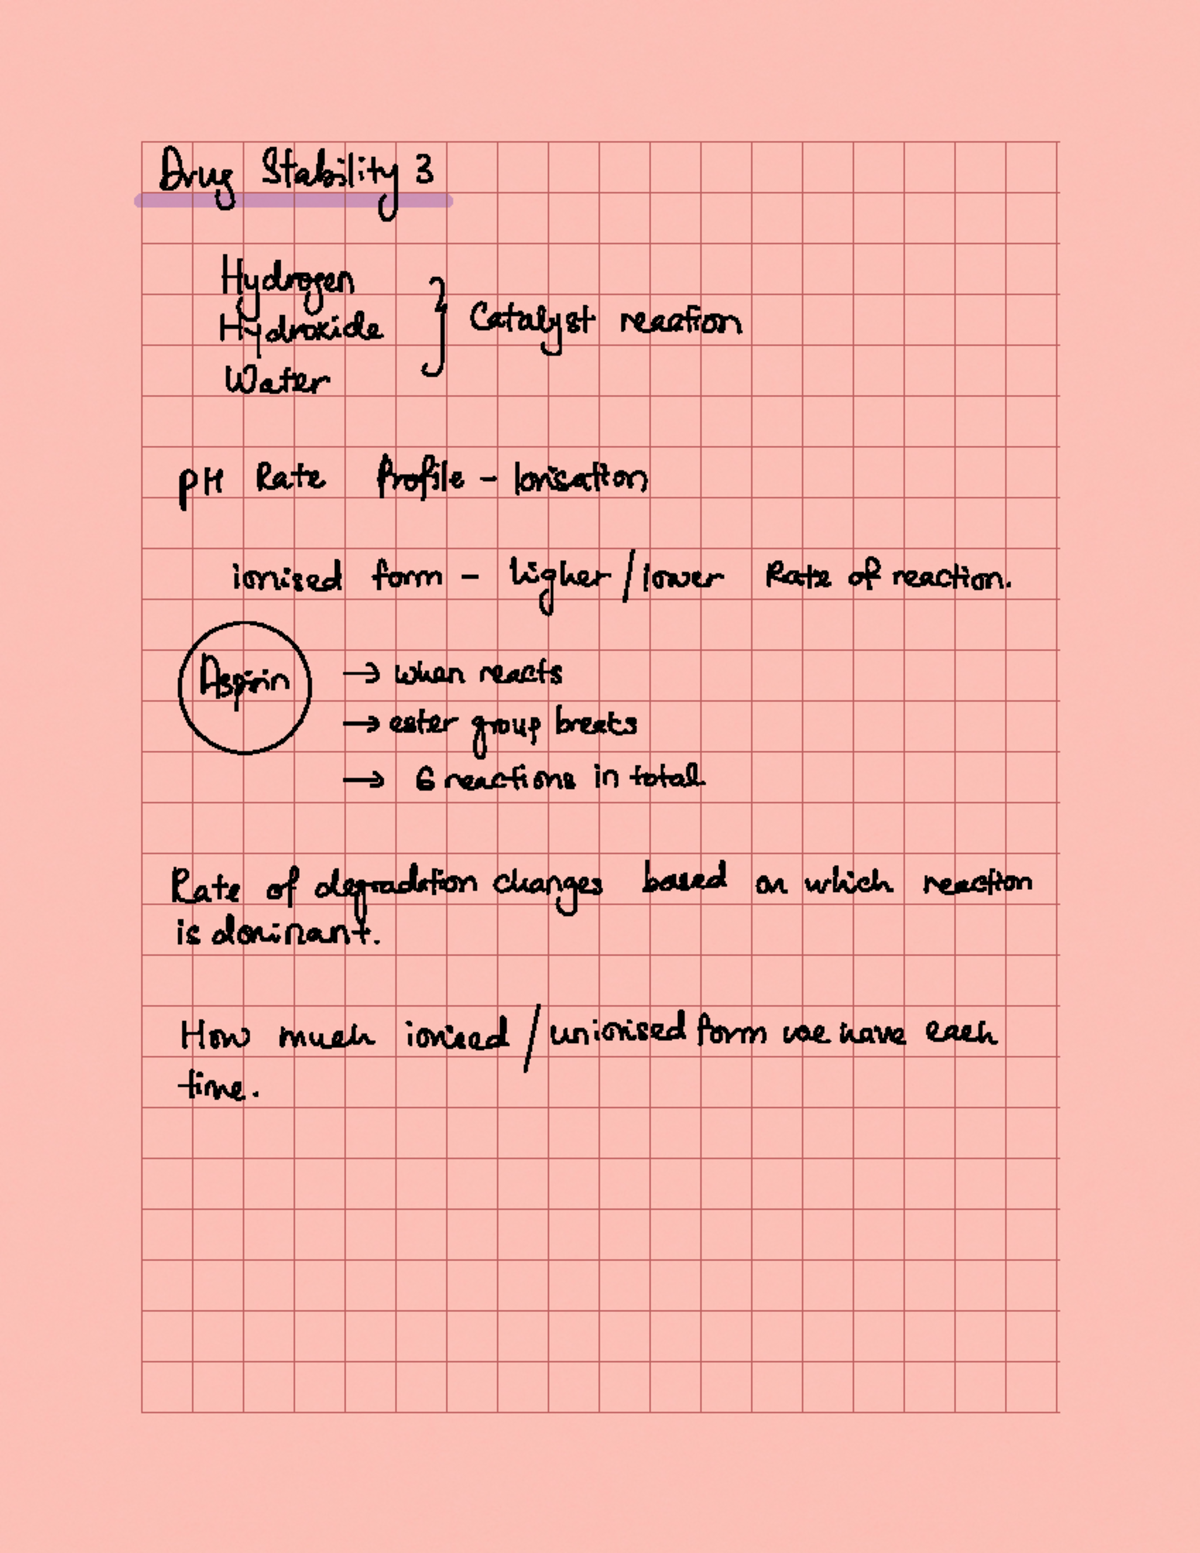 Drug Stability 3
Hydrogen
Hydroxide
Water
} Catalyst reaction
pH Rate Profile - Ionisation
ionised form - higher / lower Rate of reaction.
Aspirin
→ when reacts
→ ester group breaks
→ 6 reactions in total
Rate of degradation changes based on which reaction
is dominant.
How much ionised / unionised form we have each
time.